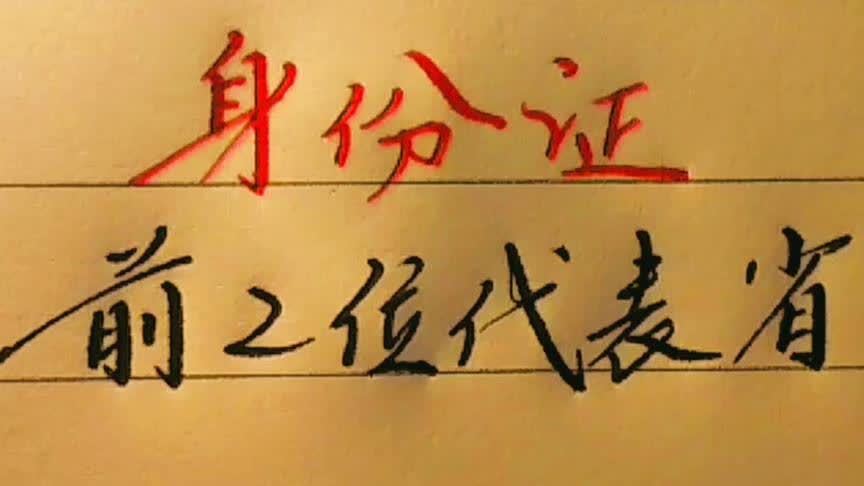 身份证
前2位代表省